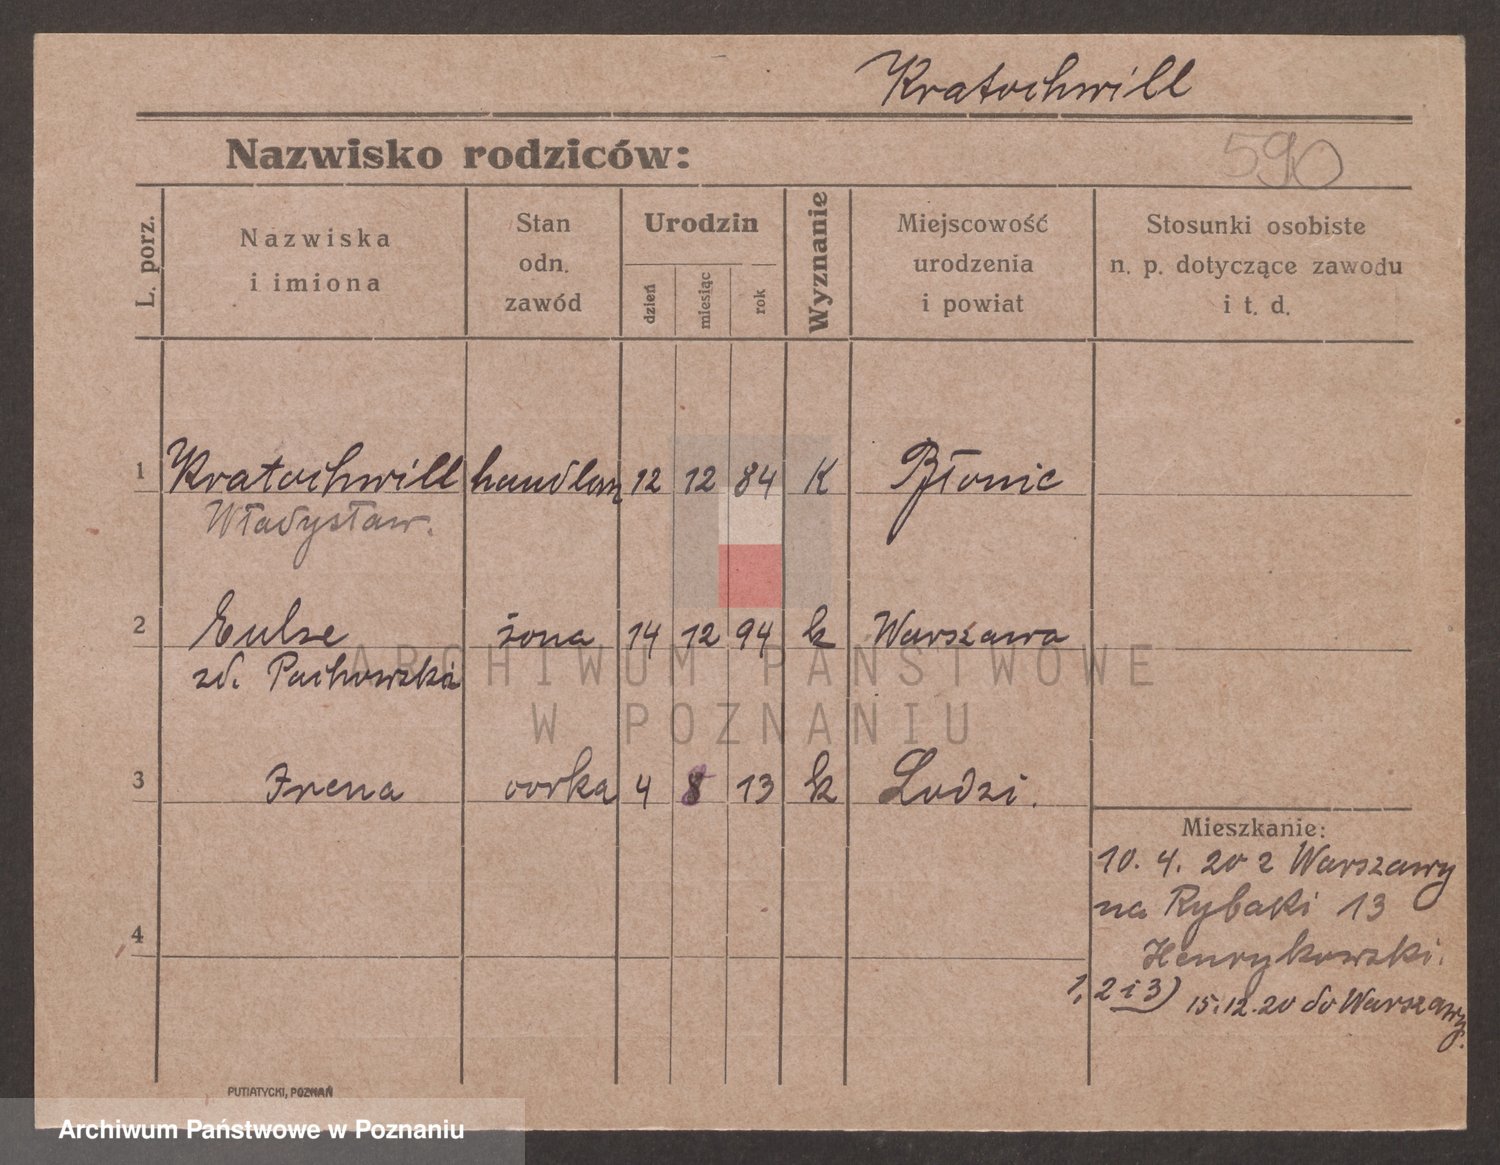 Kratochwill
Nazwisko rodziców:
590
L. porz.
Nazwiska
i imiona
Stan
odn.
zawód
Urodzin
dzień
miesiąc
rok
Wyznanie
Miejscowość
urodzenia
i powiat
Stosunki osobiste
n. p. dotyczące zawodu
i t. d.
1 Kratochwill 12 12 84 K Błonie
Władysław.
2 żona 14 12 94 k Warszawa
zd. Pachowska
3 Irena córka 4 8 13 k Lodzi.
4
Mieszkanie:
10. 4. 20 z Warszawy
na Rybaki 13
Henrykowski.
1, 2 i 3) 15.12.20 do Warszawy.
PUTIATYCKI, POZNAŃ
ARCHIWUM PAŃSTWOWE
W POZNANIU
Archiwum Państwowe w Poznaniu